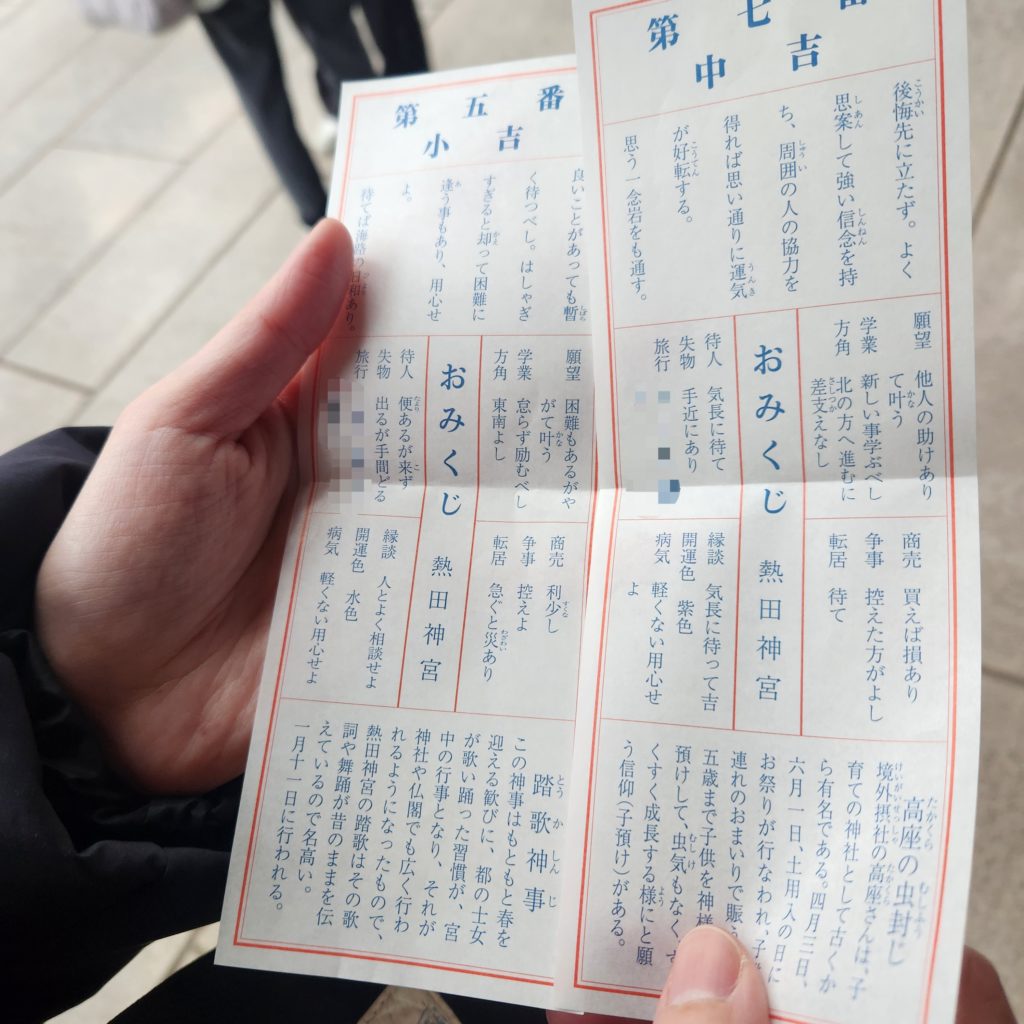 第七番
中吉
後悔先に立たず。よく
思案して強い信念を持
ち、周囲の人の協力を
得れば思い通りに運気
が好転する。
思う一念岩をも通す。
願望 他人の助けあり
て叶う
学業 新しい事学ぶべし
方角 北の方へ進むに
差支えなし
おみくじ
待人 気長に待て
失物 手近にあり
旅行
商売 買えば損あり
争事 控えた方がよし
転居 待て
熱田神宮
縁談 気長に待って吉
開運色 紫色
病気 軽くない用心せ
よ
高座の虫封じ
境外摂社の高座さんは、子
育ての神社として古くか
ら有名である。四月三日、
六月一日、土用入の日に
お祭りが行なわれ、子
連れのおまいりで賑
五歳まで子供を神様
預けして、虫気もなく、す
くすく成長する様にと願
う信仰(子預け)がある。
第五番
小吉
良いことがあっても暫
く待つべし。はしゃぎ
すぎると却って困難に
逢う事もあり、用心せ
よ。
待てば海路の日和あり。
願望 困難もあるがや
がて叶う
学業 怠らず励むべし
方角 東南よし
おみくじ
待人 便あるが来ず
失物 出るが手間どる
旅行
商売 利少し
争事 控えよ
転居 急ぐと災あり
熱田神宮
縁談 人とよく相談せよ
開運色 水色
病気 軽くない用心せよ
踏歌神事
この神事はもともと春を
迎える歓びに、都の士女
が歌い踊った習慣が、宮
中の行事となり、それが
神社や仏閣でも広く行わ
れるようになったもので、
熱田神宮の踏歌はその歌
詞や舞踊が昔のままを伝
えているので名高い。
一月十一日に行われる。